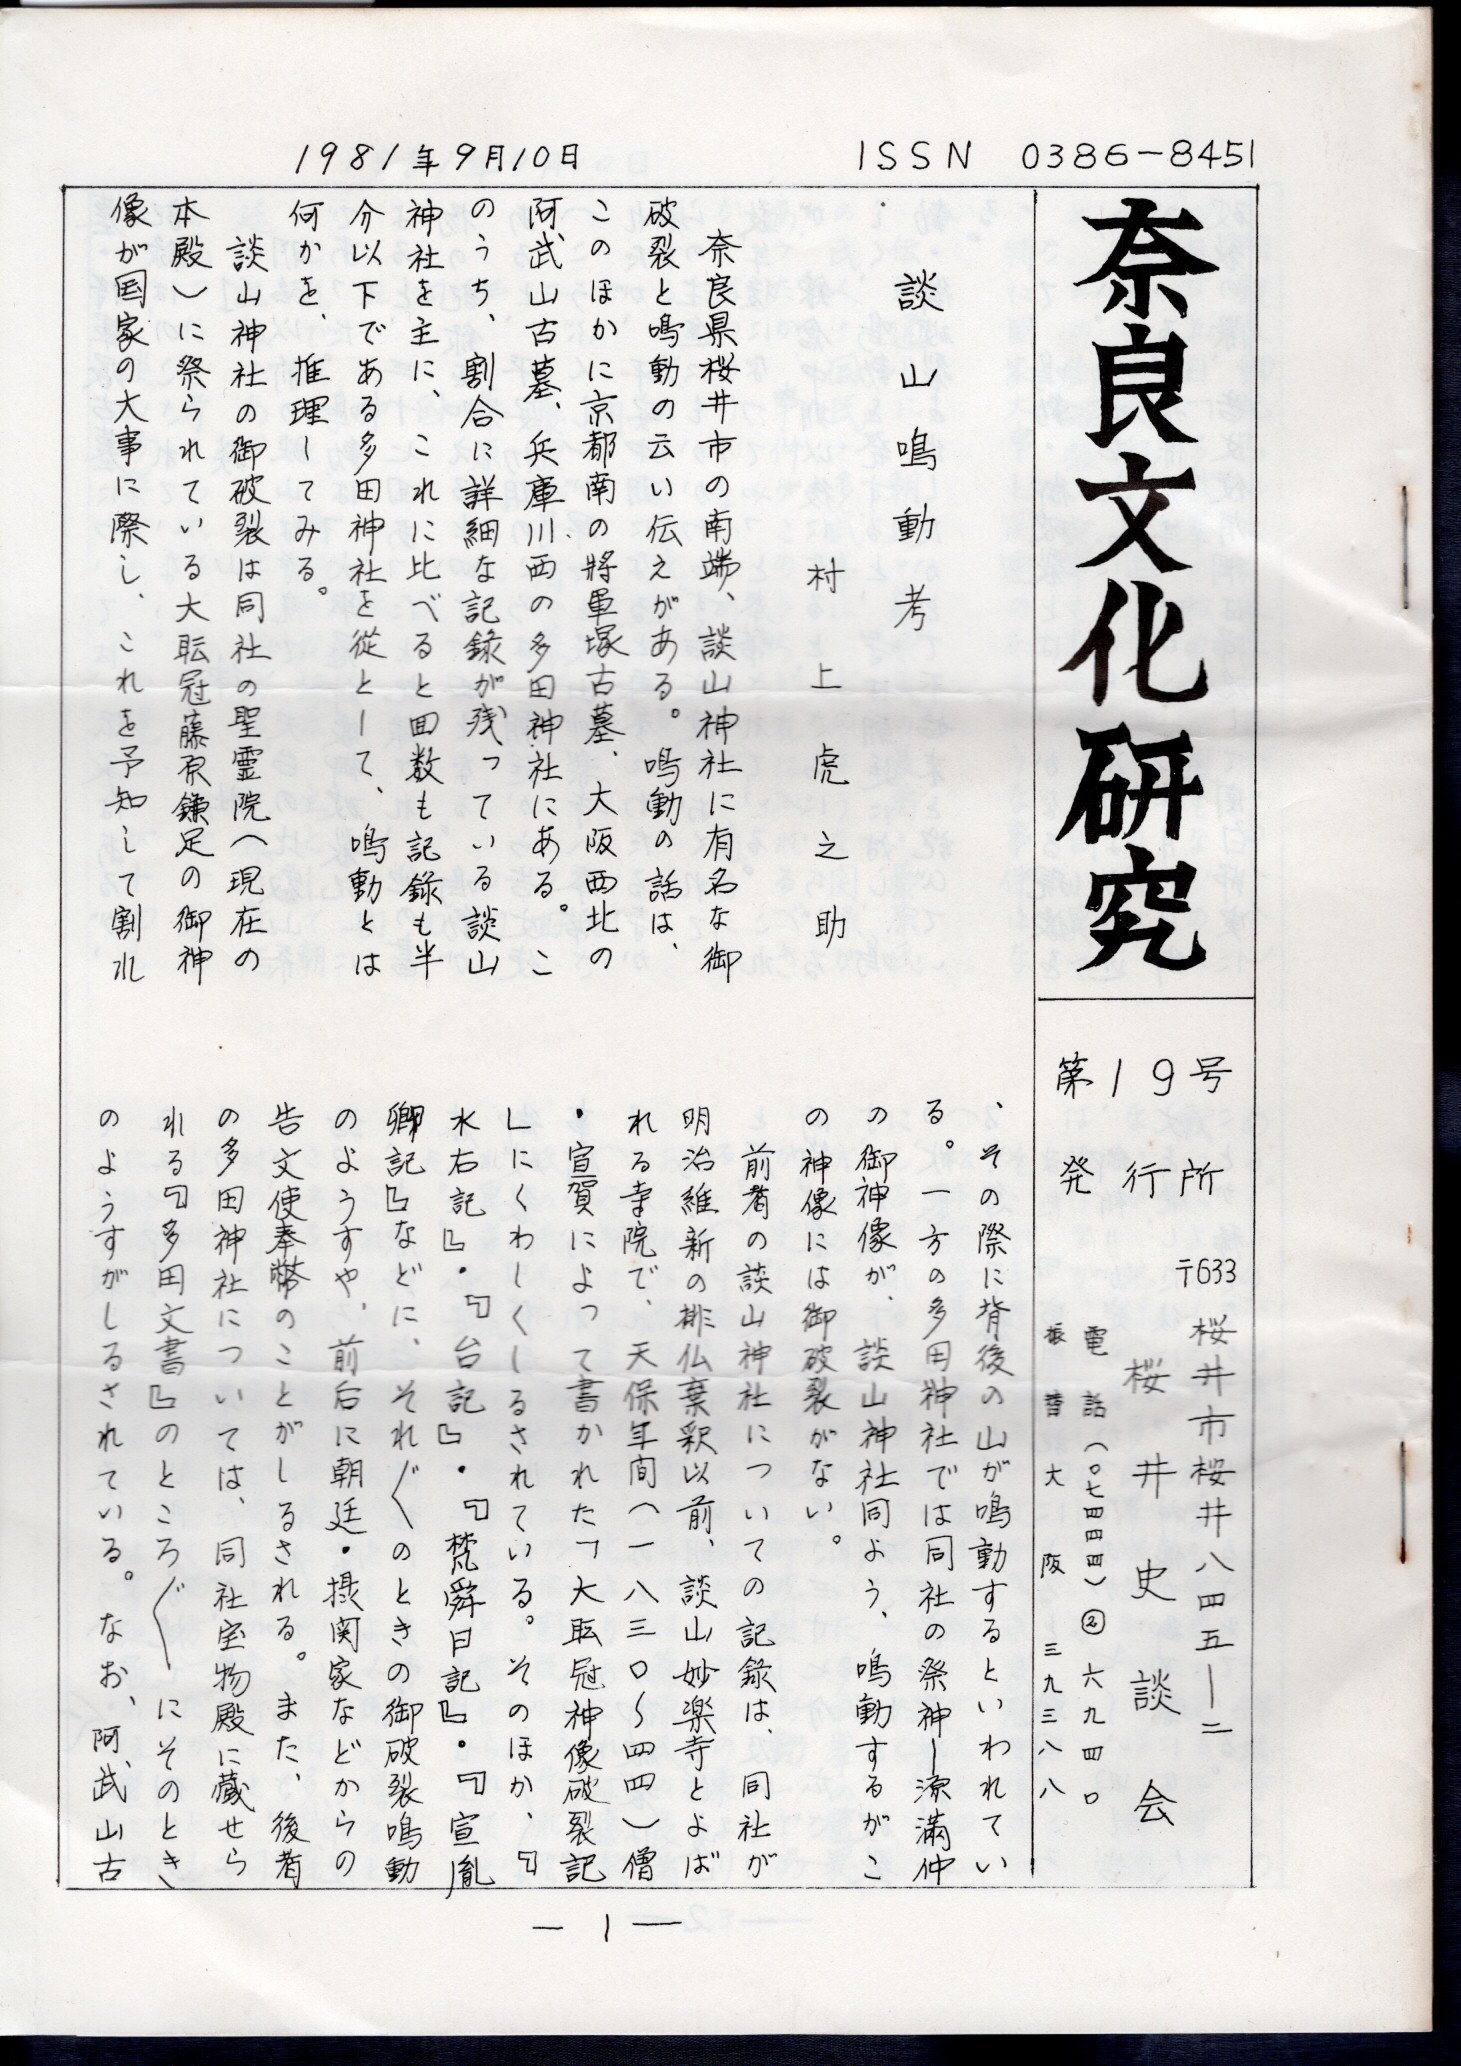 1981年9月10日
ISSN 0386-8451
奈良文化研究
第19号
発行所
〒633
桜井市桜井八四五―二
桜井史談会
電話(〇七四四四)②六九四〇
振替大阪三九三八八
談山鳴動考
村上虎之助
奈良県桜井市の南端、談山神社に有名な御
破裂と鳴動の云い伝えがある。鳴動の話は、
このほかに京都南の将軍塚古墓、大阪西北の
阿武山古墓、兵庫川西の多田神社にある。こ
のうち、割合に詳細な記録が残っている談山
神社を主に、これに比べると回数も記録も半
分以下である多田神社を従として、鳴動とは
何かを、推理してみる。
談山神社の御破裂は同社の聖霊院(現在の
本殿)に祭られている大耺冠藤原鎌足の御神
像が国家の大事に際し、これを予知して割れ
、その際に背後の山が鳴動するといわれてい
る。一方の多田神社では同社の祭神―源満仲
の御神像が、談山神社同よう、鳴動するがこ
の神像には御破裂がない。
前者の談山神社についての記録は、同社が
明治維新の排仏棄釈以前、談山妙楽寺とよば
れる寺院で、天保年間(一八三〇~四四)僧
・宣賀によって書かれた「大耺冠神像破裂記
」にくわしくしるされている。そのほか、『
水右記』・『台記』・『梵舜日記』・『宣胤
卿記』などに、それ〲のときの御破裂鳴動
のようすや、前后に朝廷・摂関家などからの
告文使奉幣のことがしるされる。また、後者
の多田神社については、同社宝物殿に蔵せら
れる『多田文書』のところ〲にそのとき
のようすがしるされている。なお、阿武山古
―1―